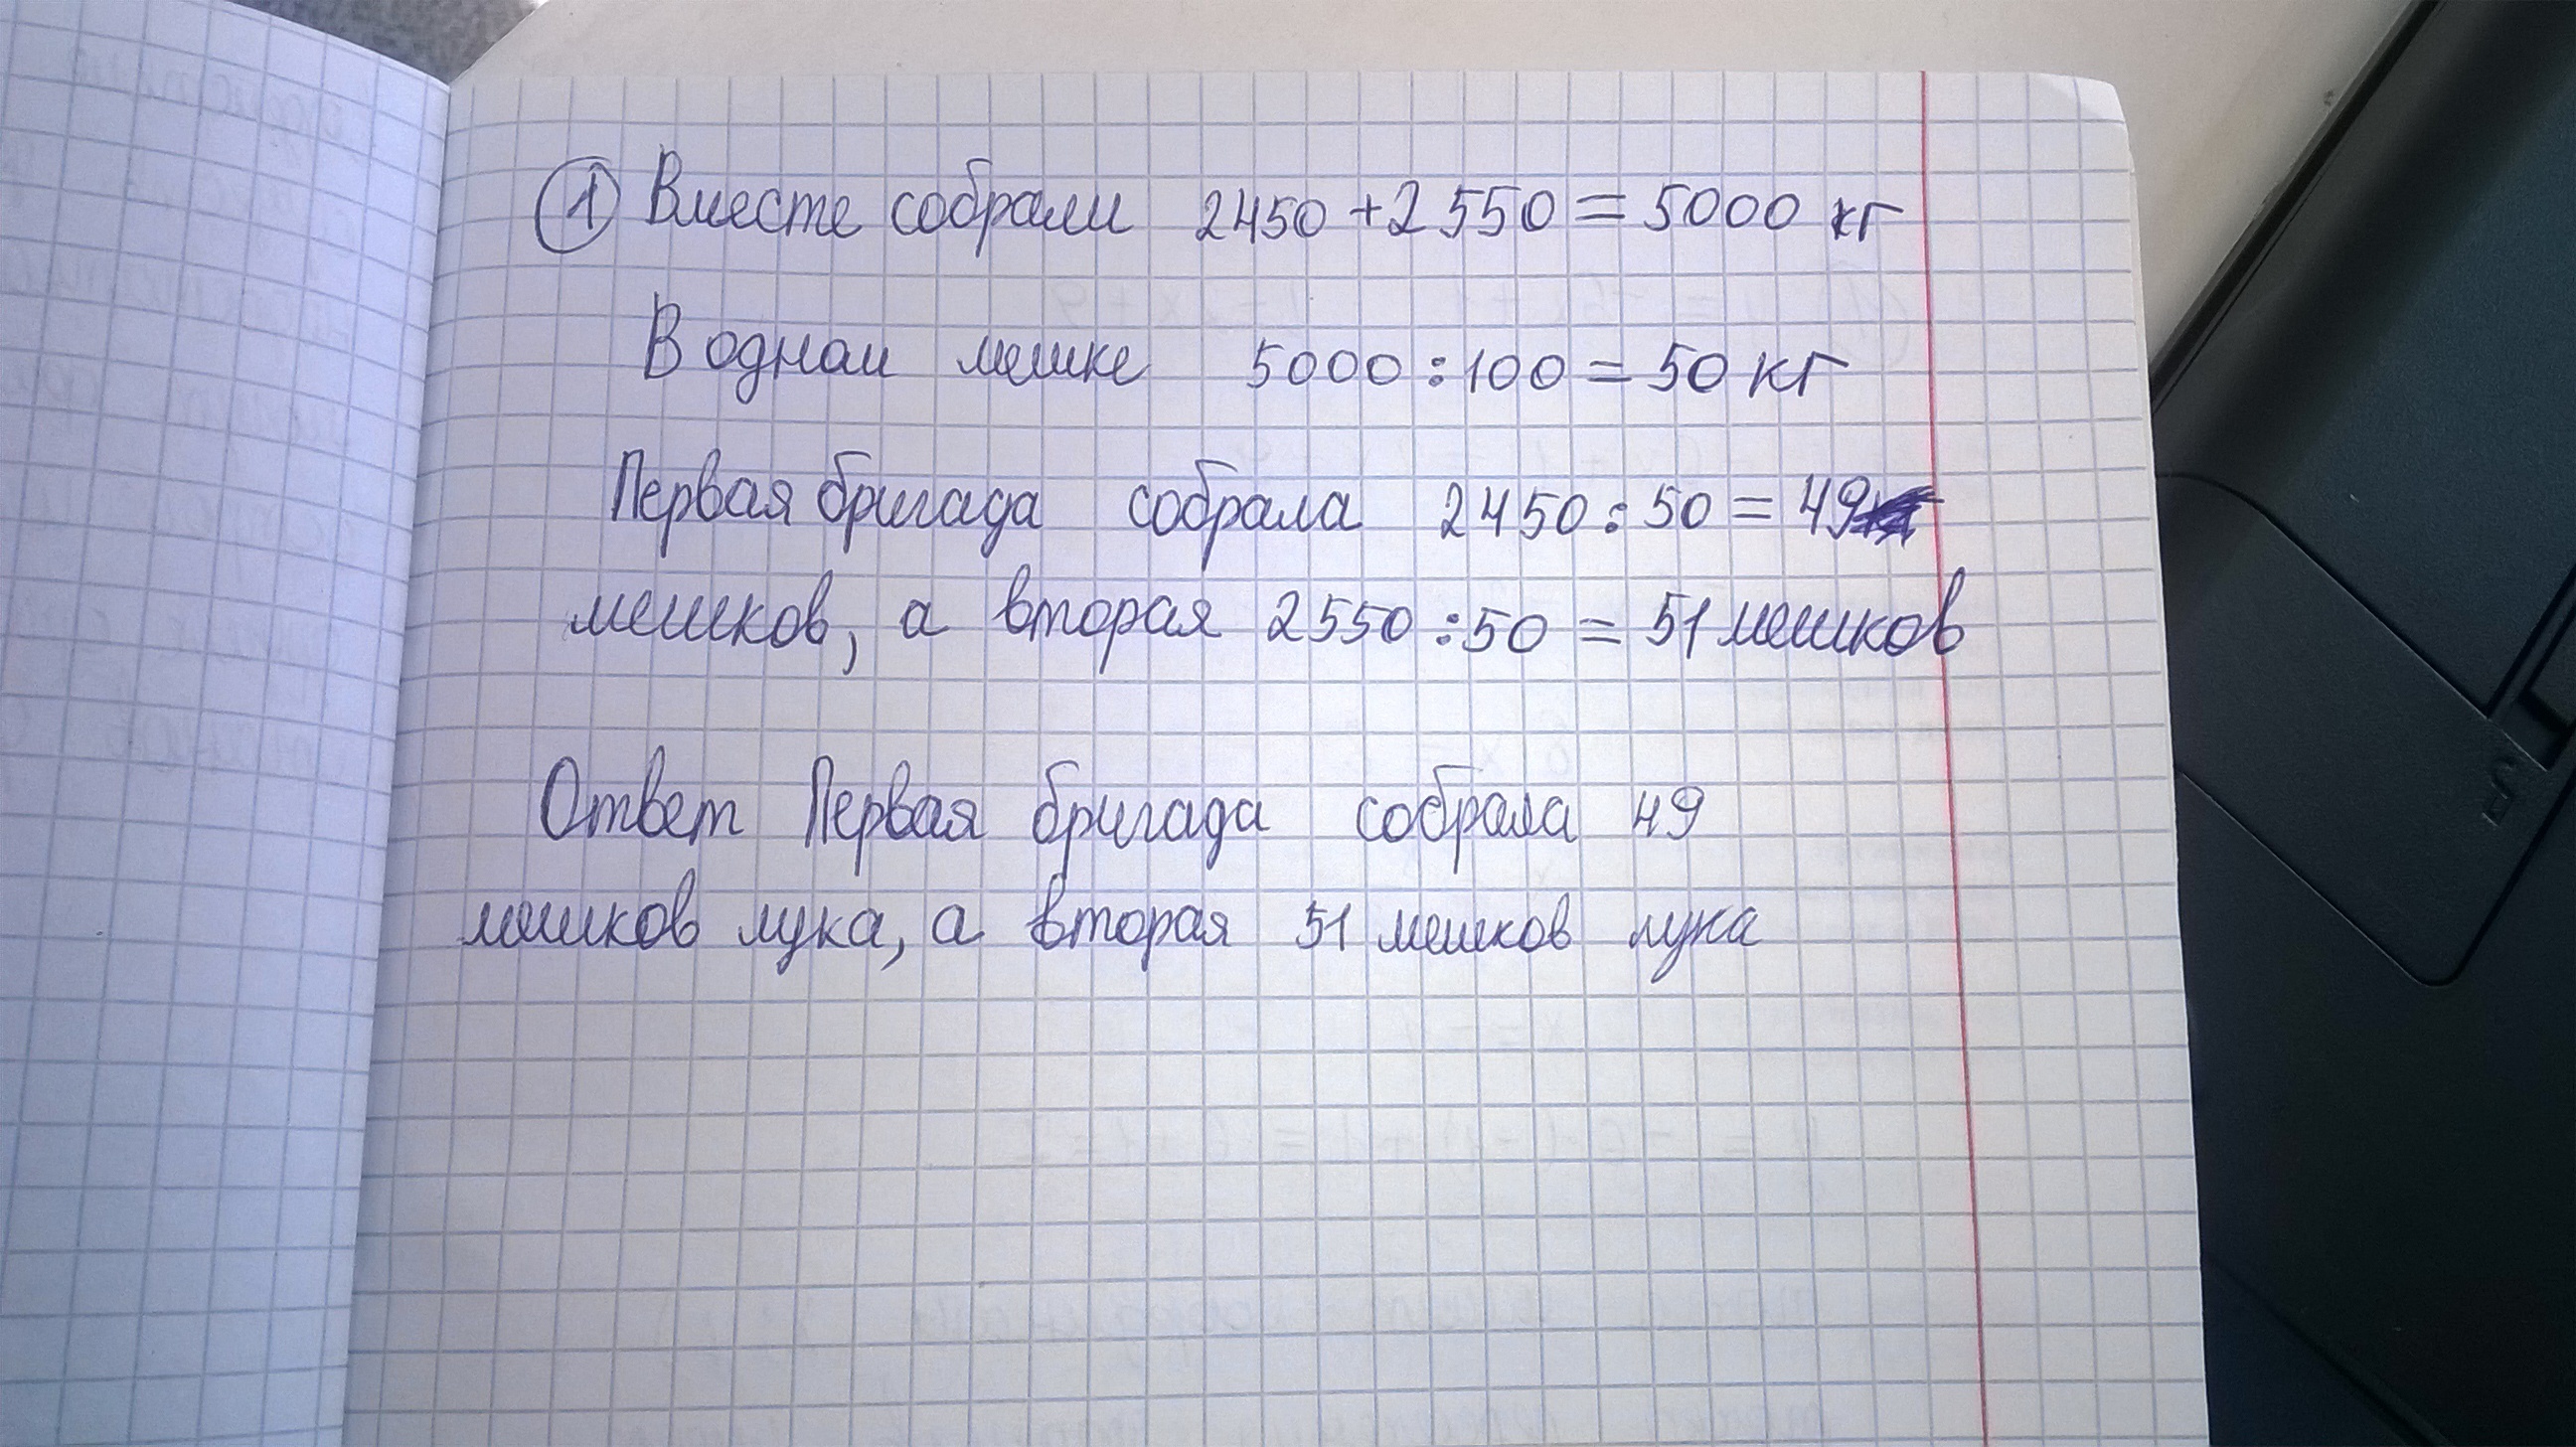 ① Вместе собрали 2450 + 2550 = 5000 кг
В одном мешке 5000 : 100 = 50 кг
Первая бригада собрала 2450 : 50 = 49
мешков, а вторая 2550 : 50 = 51 мешков
Ответ Первая бригада собрала 49
мешков лука, а вторая 51 мешков лука